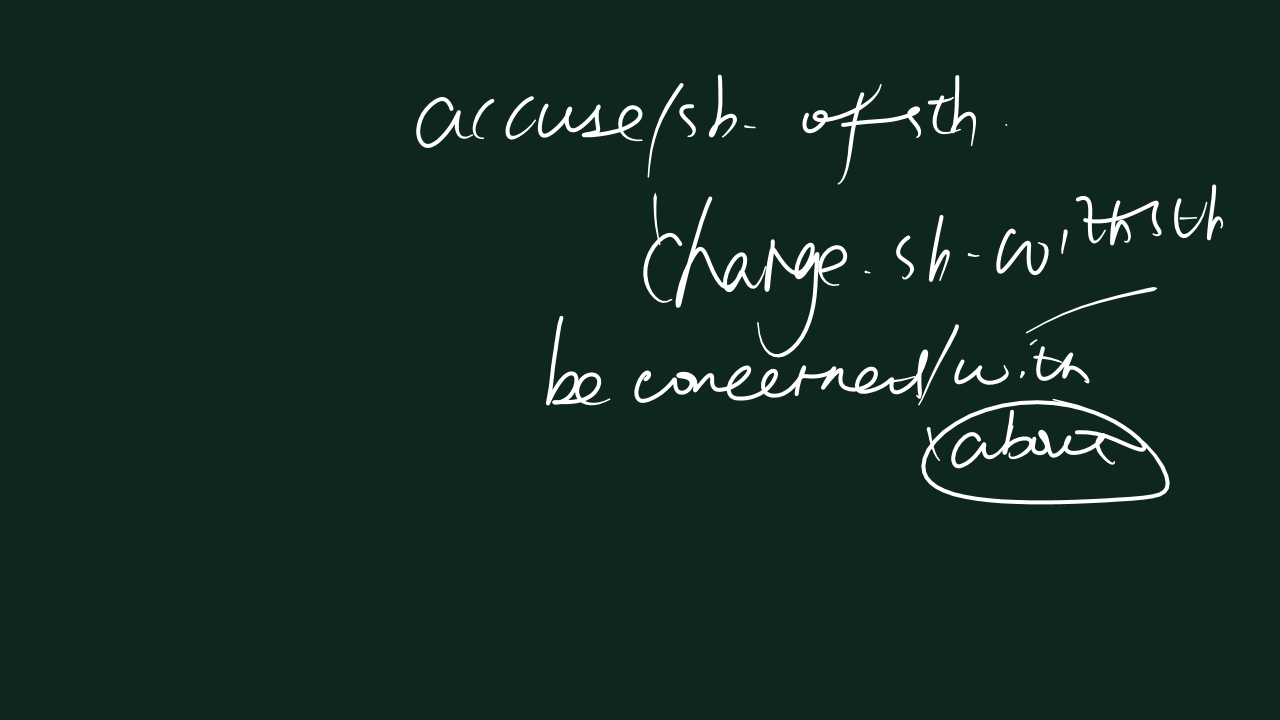 accuse/sb. of sth.
charge. sb. with sth
be concerned/with
about